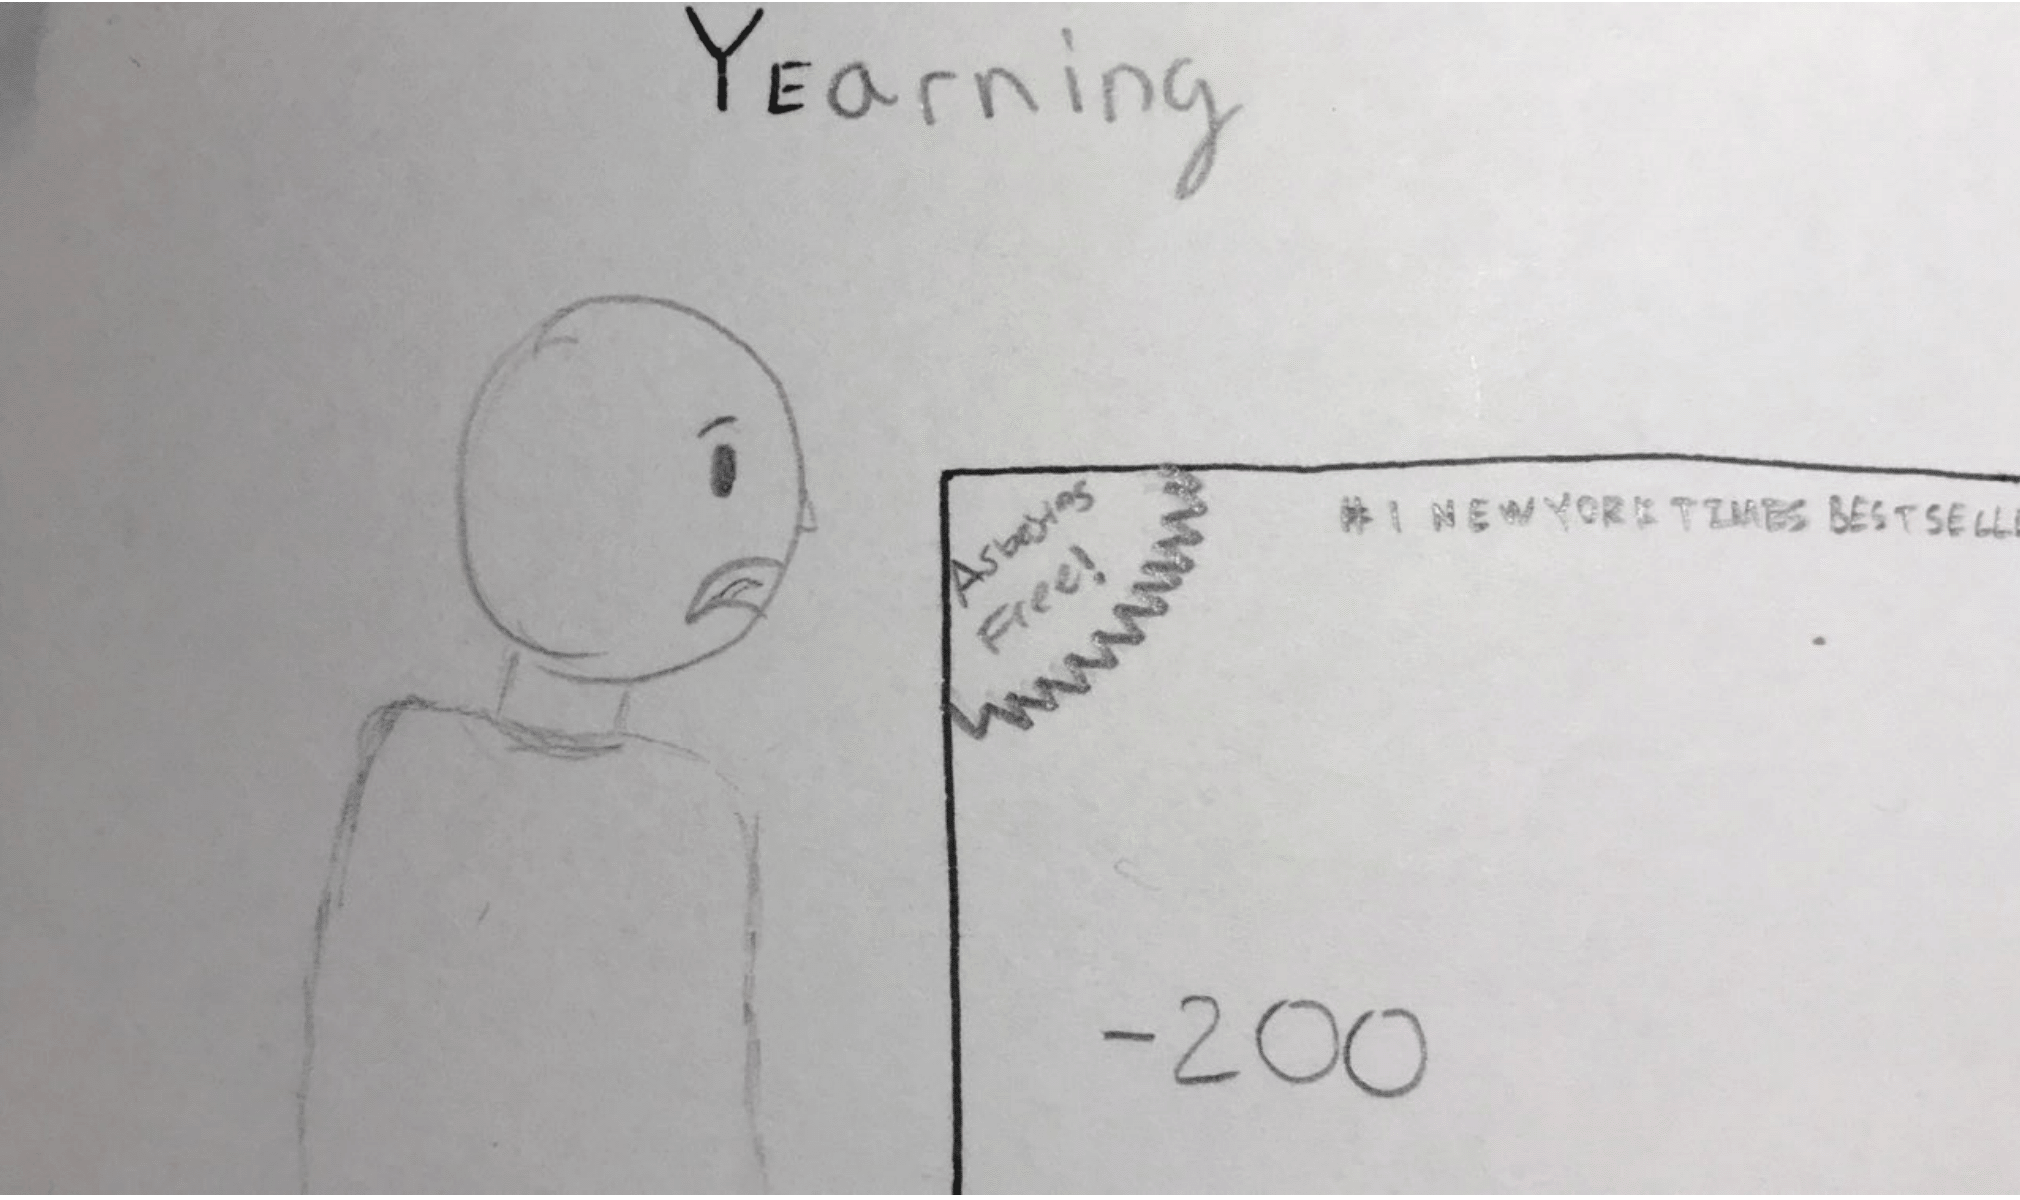 YEarning
Asbestos
Free!
#1 NEW YORK TIMES BESTSELLE
-200